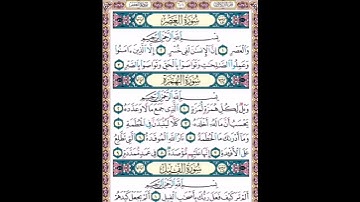 سُورَةُ العَصْرِ
بِسْمِ اللَّهِ الرَّحْمَٰنِ الرَّحِيمِ
وَالْعَصْرِ ١ إِنَّ الْإِنسَانَ لَفِي خُسْرٍ ٢ إِلَّا الَّذِينَ آمَنُوا
وَعَمِلُوا الصَّالِحَاتِ وَتَوَاصَوْا بِالْحَقِّ وَتَوَاصَوْا بِالصَّبْرِ ٣
سُورَةُ الهُمَزَةِ
بِسْمِ اللَّهِ الرَّحْمَٰنِ الرَّحِيمِ
وَيْلٌ لِّكُلِّ هُمَزَةٍ لُّمَزَةٍ ١ الَّذِي جَمَعَ مَالًا وَعَدَّدَهُ ٢
يَحْسَبُ أَنَّ مَالَهُ أَخْلَدَهُ ٣ كَلَّا لَيُنبَذَنَّ فِي الْحُطَمَةِ ٤
وَمَا أَدْرَاكَ مَا الْحُطَمَةُ ٥ نَارُ اللَّهِ الْمُوقَدَةُ ٦ الَّتِي تَطَّلِعُ
عَلَى الْأَفْئِدَةِ ٧ إِنَّهَا عَلَيْهِم مُّؤْصَدَةٌ ٨ فِي عَمَدٍ مُّمَدَّدَةٍ ٩
سُورَةُ الفِيلِ
بِسْمِ اللَّهِ الرَّحْمَٰنِ الرَّحِيمِ
أَلَمْ تَرَ كَيْفَ فَعَلَ رَبُّكَ بِأَصْحَابِ الْفِيلِ ١ أَلَمْ يَجْعَلْ كَيْدَهُمْ